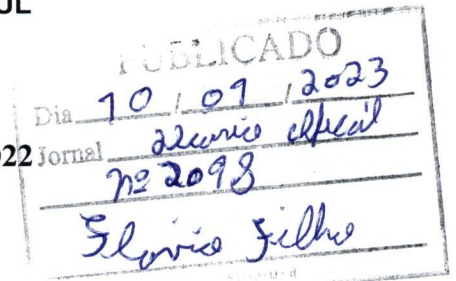 UL
PUBLICADO
Dia 10 / 01 / 2023
022 Jornal Diario oficial
nº 2098
Flavio Filho